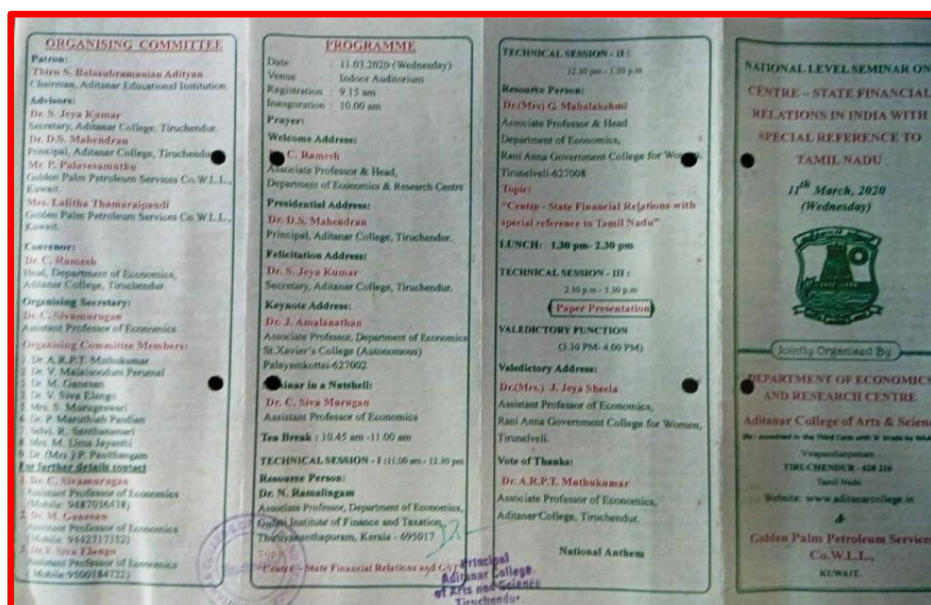 ORGANISING COMMITTEE
Patron:
Thiru S. Balasubramanian Adityan
Chairman, Aditanar Educational Institution
Advisors:
Dr. S. Jeya Kumar
Secretary, Aditanar College, Tiruchendur.
Dr. D.S. Mahendran
Principal, Aditanar College, Tiruchendur
Mr. P. Palavesamuthu
Golden Palm Petroleum Services Co.W.L.L.,
Kuwait.
Mrs. Lalitha Thamaraipandi
Golden Palm Petroleum Services Co.W.L.L.,
Kuwait.
Convenor:
Dr. C. Ramesh
Head, Department of Economics,
Aditanar College, Tiruchendur.
Organising Secretary:
Dr. C. Sivamurugan
Assistant Professor of Economics
Organising Committee Members:
1. Dr. A.R.P.T. Muthukumar
2. Dr. V. Malaisoodum Perumal
3. Dr. M. Ganesan
Dr. V. Siva Elango
5. Mrs. S. Murugeswari
6. Dr. P. Maruthiah Pandian
7. Selvi. R.
8. Mrs. M. Uma Jeyanthi
9. Dr. (Mrs.) P. Pavithangam
For further details contact
1. Dr. C. Sivamurugan
Assistant Professor of Economics
(Mobile: 9487036438)
2. Dr. M. Ganesan
Assistant Professor of Economics
(Mobile: 9442717352)
3. Dr.V. Siva Elango
Assistant Professor of Economics
(Mobile: 9500184722)
PROGRAMME
Date : 11.03.2020 (Wednesday)
Venue : Indoor Auditorium
Registration : 9.15 am
Inauguration : 10.00 am
Prayer:
Welcome Address:
C. Ramesh
Associate Professor & Head,
Department of Economics & Research Centre
Presidential Address:
Dr. D.S. Mahendran
Principal, Aditanar College, Tiruchendur.
Felicitation Address:
Dr. S. Jeya Kumar
Secretary, Aditanar College, Tiruchendur.
Keynote Address:
Dr. J. Amalanathan
Associate Professor, Department of Economics
St.Xavier's College (Autonomous)
Palayamkottai-627002
Seminar in a Nutshell:
Dr. C. Siva Murugan
Assistant Professor of Economics
Tea Break : 10.45 am -11.00 am
TECHNICAL SESSION - I :11.00 am - 12.30 pm
Resource Person:
Dr. N. Ramalingam
Associate Professor, Department of Economics,
Gulati Institute of Finance and Taxation,
Thiruvananthapuram, Kerala - 695017
Topic:
"Centre - State Financial Relations and GST"
Principal
Aditanar College
of Arts and Science
Tiruchendur.
TECHNICAL SESSION - II :
12.30 pm - 1.30 pm
Resource Person:
Dr.(Mrs) G. Mahalakshmi
Associate Professor & Head
Department of Economics,
Rani Anna Government College for Women,
Tirunelveli-627008
Topic:
"Centre - State Financial Relations with
special reference to Tamil Nadu"
LUNCH: 1.30 pm- 2.30 pm
TECHNICAL SESSION - III :
2.30 p.m - 3.30 p.m
Paper Presentation
VALEDICTORY FUNCTION
(3.30 PM- 4.00 PM)
Valedictory Address:
Dr.(Mrs.) J. Jeya Sheela
Assistant Professor of Economics,
Rani Anna Government College for Women,
Tirunelveli.
Vote of Thanks:
Dr.A.R.P.T. Muthukumar
Associate Professor of Economics,
Aditanar College, Tiruchendur.
National Anthem
NATIONAL LEVEL SEMINAR ON
CENTRE - STATE FINANCIAL
RELATIONS IN INDIA WITH
SPECIAL REFERENCE TO
TAMIL NADU
11th March, 2020
(Wednesday)
Jointly Organised By
DEPARTMENT OF ECONOMICS
AND RESEARCH CENTRE
Aditanar College of Arts & Scienc
(Re - accredited in the Third Cycle with 'A' Grade by NAA
Virapandianpatnam
TIRUCHENDUR - 628 216
Tamil Nadu
Website: www.aditanarcollege.in
&
Golden Palm Petroleum Services
Co.W.L.L.,
KUWAIT.